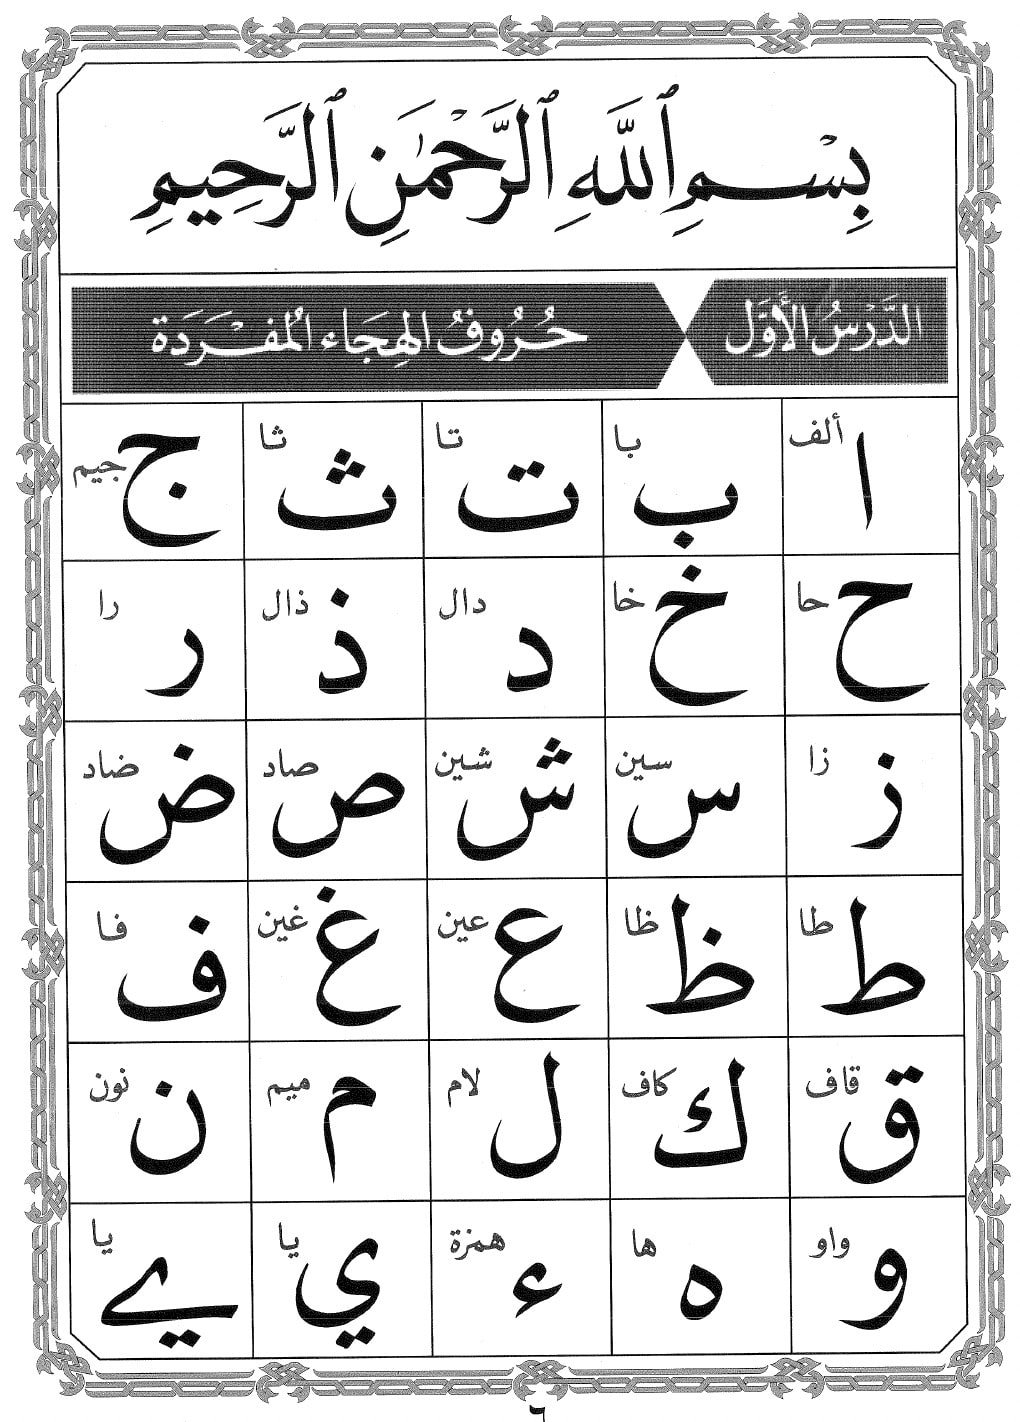 بِسْمِ ٱللَّهِ ٱلرَّحْمَٰنِ ٱلرَّحِيمِ
الدَّرْسُ الأَوَّل حُرُوفُ الهِجَاء المُفْرَدَة
ا ألف ب با ت تا ث ثا ج جيم
ح حا خ خا د دال ذ ذال ر را
ز زا س سين ش شين ص صاد ض ضاد
ط طا ظ ظا ع عين غ غين ف فا
ق قاف ك كاف ل لام م ميم ن نون
و واو ه ها ء همزة ي يا ے يا
٦